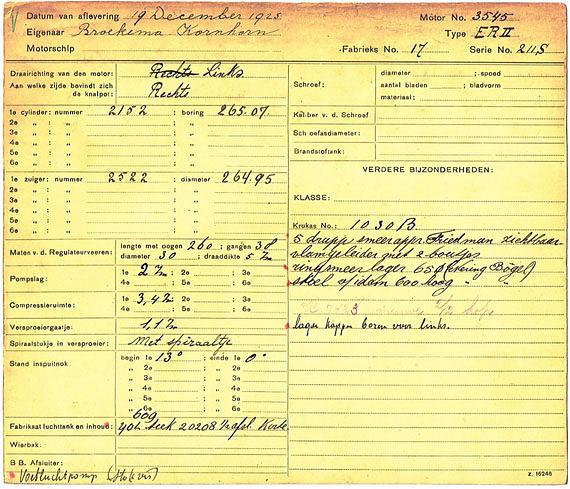 Datum van aflevering 19 December 1925 Motor No. 3545
Eigenaar Broekema Kornhorn Type ER II
Motorschip Fabrieks No. 17 Serie No. 211,S
Draairichting van den motor: Rechts Links
Aan welke zijde bevindt zich de knalpot: Rechts
1e cylinder: nummer 2152 ; boring 265.07.
2e „ : „ ; „
3e „ : „ ; „
4e „ : „ ; „
5e „ : „ ; „
6e „ : „ ; „
1e zuiger: nummer 2522 ; diameter 264.95
2e „ : „ ; „
3e „ : „ ; „
4e „ : „ ; „
5e „ : „ ; „
6e „ : „ ; „
Maten v. d. Regulateurveeren: lengte met oogen 260 ; gangen 38
diameter 30 ; draaddikte 5
Pompslag: 1e 2 ; 2e ; 3e
4e ; 5e ; 6e
Compressieruimte: 1e 3,4 ; 2e ; 3e
4e ; 5e ; 6e
Versproeiergaatje: 1,1
Spiraalstukje in versproeier: Met spiraaltje
Stand inspuitnok begin 1e 13° ; einde 1e 0°
„ 2e ; „ 2e
„ 3e ; „ 3e
„ 4e ; „ 4e
„ 5e ; „ 5e
„ 6e ; „ 6e
Fabrikaat luchttank en inhoud: 20208
Wierbak:
B B. Afsluiter:
Voorluchtpomp
Schroef: diameter ; spoed
aantal bladen ; bladvorm
materiaal:
Kaliber v. d. Schroef
Schroefasdiameter:
Brandstoftank:
VERDERE BIJZONDERHEDEN:
KLASSE:
Krukas No.: 1030 B
5 drupp smeerappr. Friedman zichtbaar-
vlamgeleider met 2 boutjes
ringsmeer lager 65 Ø
600 hoog
lager kappen boren voor links.
z. 16246